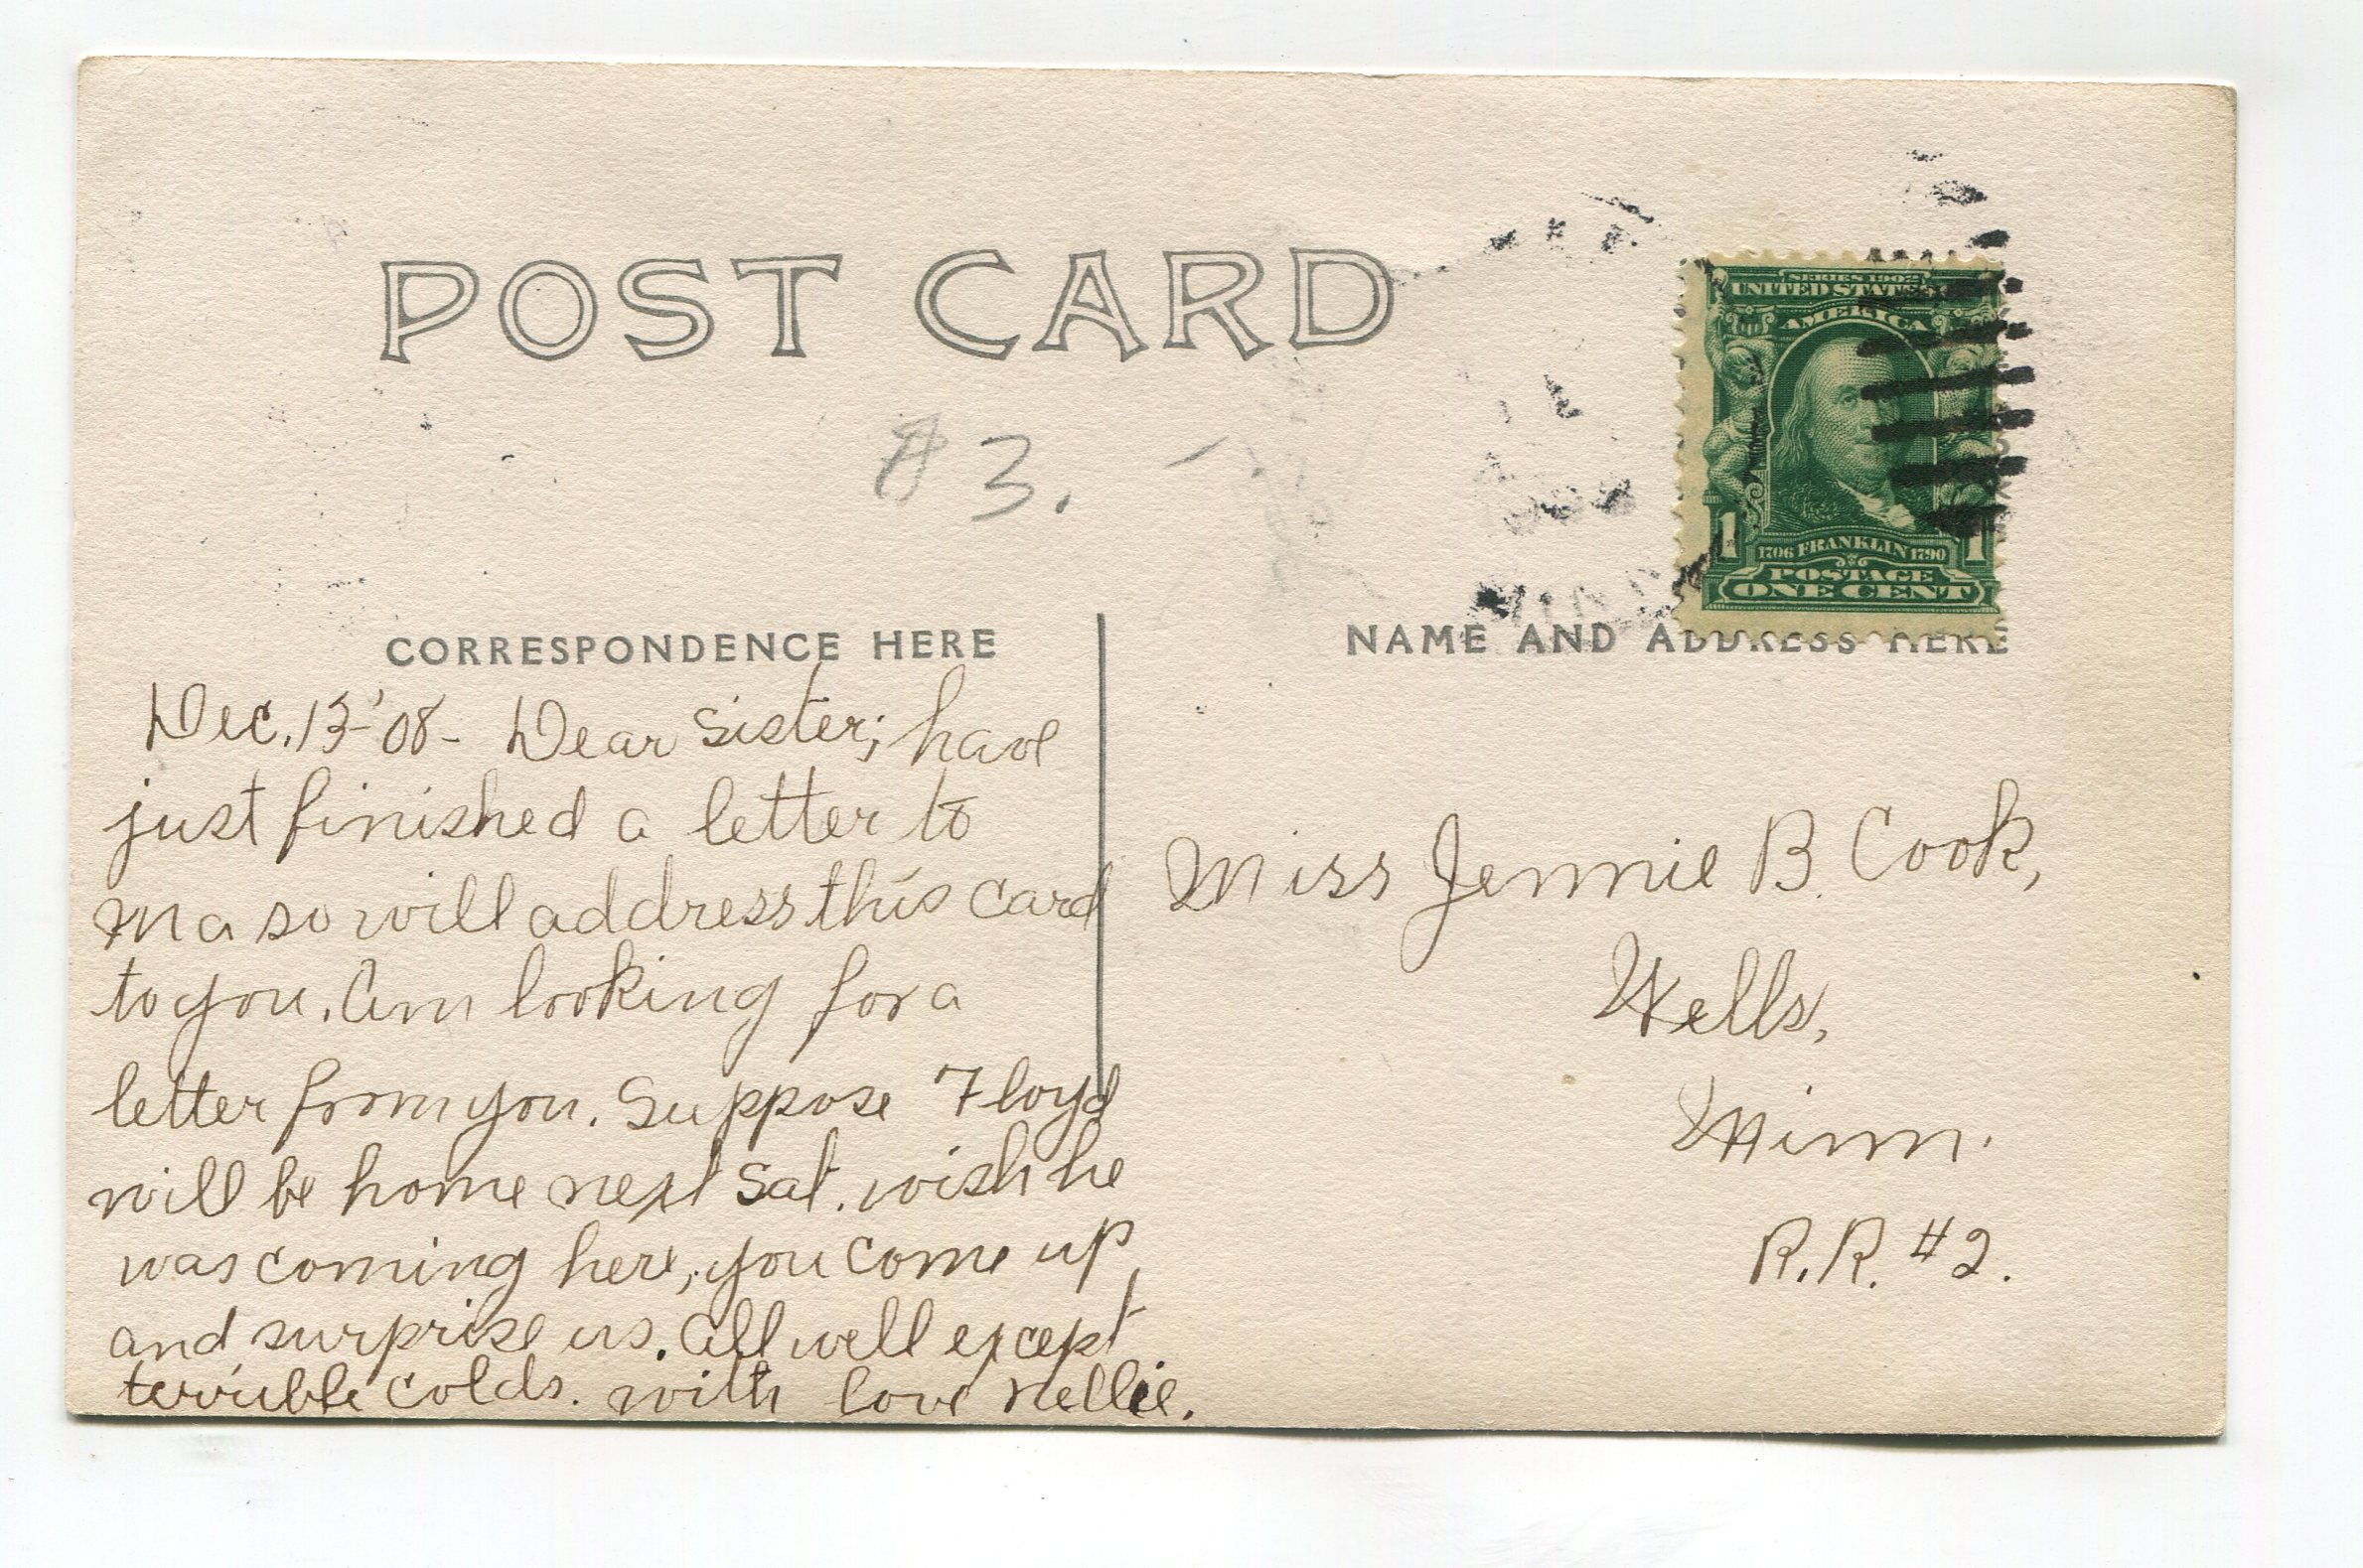 POST CARD
#3.
SERIES 1902
UNITED STATES
AMERICA
1 1
1706 FRANKLIN 1790
POSTAGE
ONE CENT
CORRESPONDENCE HERE
NAME AND ADDRESS HERE
Dec. 13-'08- Dear Sister; have
just finished a letter to
Ma so will address this card
to you. Am looking for a
letter from you. Suppose Floyd
will be home next Sat. wish he
was coming here, you come up
and surprise us. All well except
terrible colds. with love Nellie.
Miss Jennie B. Cook,
Wells,
Minn.
R.R. #2.